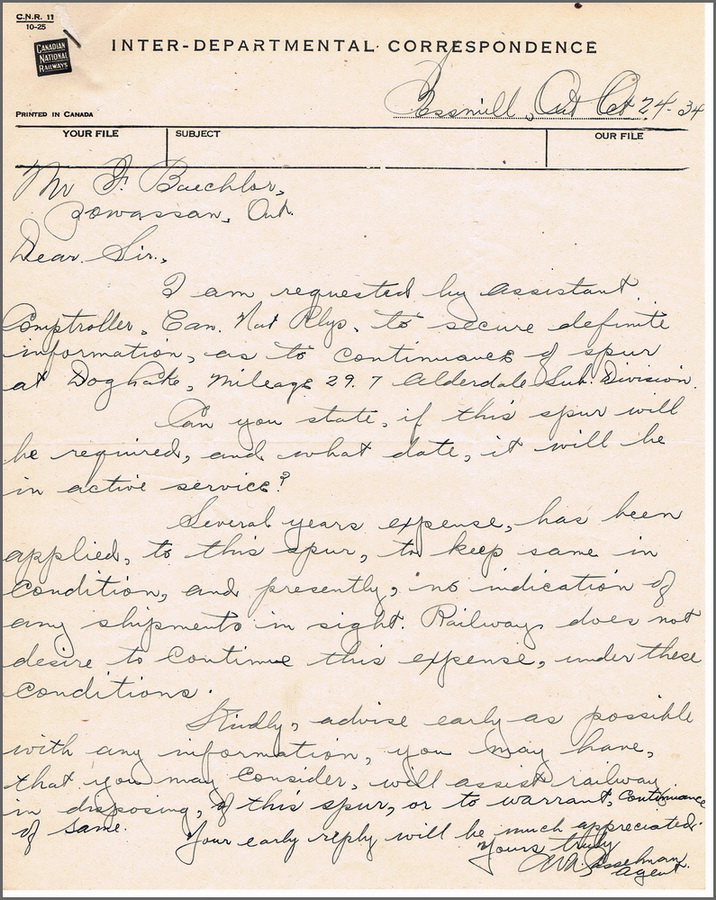 C.N.R. 11
10-25
CANADIAN
NATIONAL
RAILWAYS
INTER-DEPARTMENTAL CORRESPONDENCE
PRINTED IN CANADA
Ont Oct 24-34
YOUR FILE SUBJECT OUR FILE
Mr F. Baechlor,
Powassan, Ont.
Dear Sir.,
I am requested by assistant
Comptroller, Can. Nat Rlys. to secure definite
information, as to continuance of spur
at Doglake, Mileage 29.7 Alderdale Sub. Division.
Can you state, if this spur will
be required, and what date, it will be
in active service?
Several years expense, has been
applied, to this spur, to keep same in
condition, and presently, no indication of
any shipments in sight. Railways does not
desire to continue this expense, under these
conditions.
Kindly, advise early as possible
with any information, you may have,
that you may consider, will assist railway
in disposing, of this spur, or to warrant, continuance
of same.
Your early reply will be much appreciated.
Yours truly
Agent